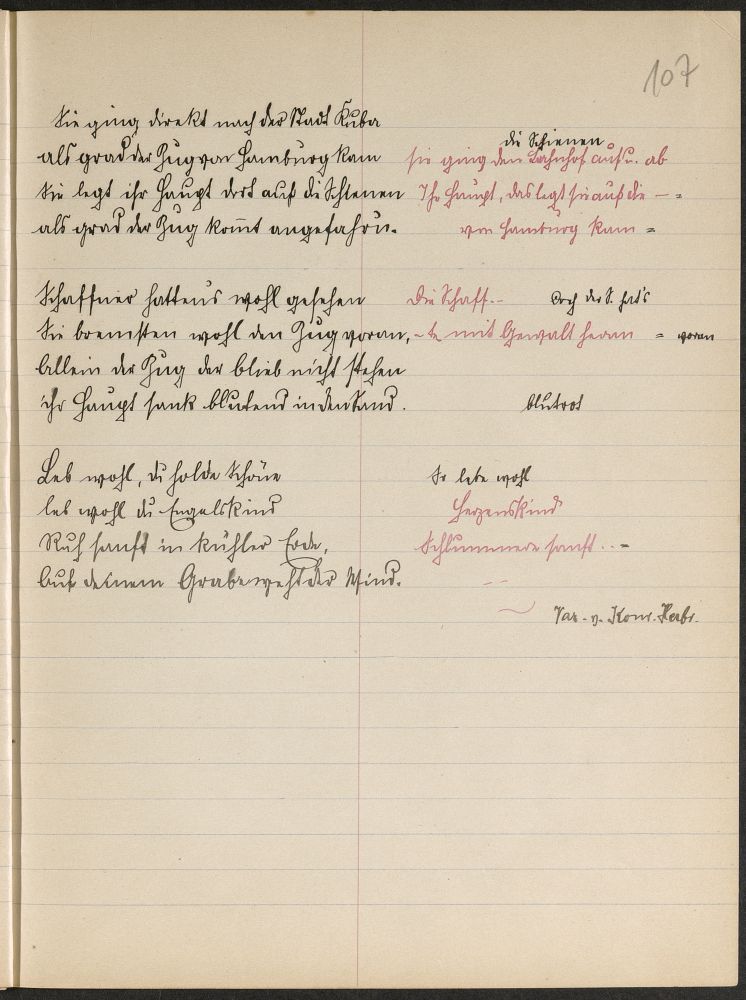 107
Sie ging direkt nach der Stadt Kuba
die Schienen
als grad der Zug von Hamburg kam sie ging den Bahnhof auf u. ab
Sie legt ihr Haupt dort auf die Schienen Ihr Haupt, das legt sie auf die — =
als grad der Zug kom̅t angefahrn. von Hamburg kam =
Schaffner hatten's wohl gesehen Die Schaff. - Doch der S. hat's
Sie bremsten wohl den Zug voran, - te mit Gewalt heran = voran
Allein der Zug der blieb nicht stehen
ihr Haupt sank blutend in den Sand. blutrot
Leb wohl, du holde Schöne So lebe wohl
leb wohl du Engelskind Herzenskind
Ruh sanft in kühler Erde, Schlummere sanft . . =
Auf deinem Grabe weht der Wind. - -
Var. v. Konr. Herbr.